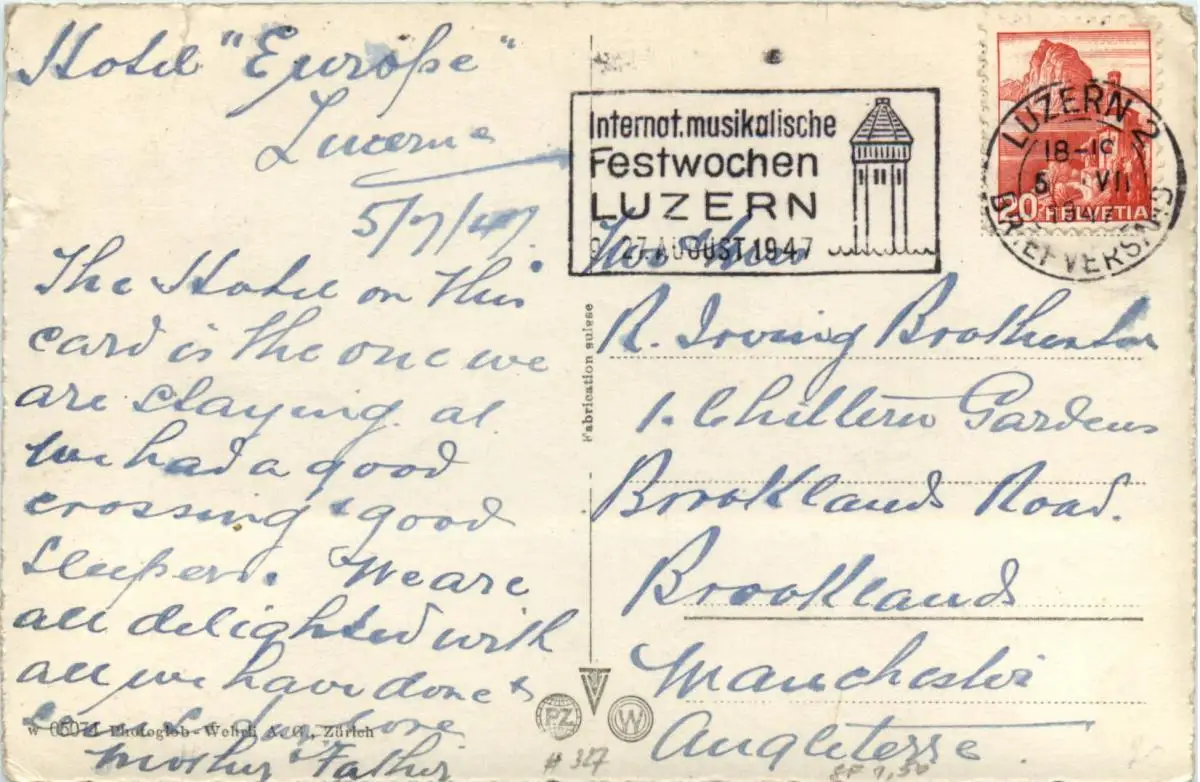 Hotel "Europe"
Lucerne
5/7/47.
The Hotel on this
card is the one we
are staying at.
We had a good
crossing & good
sleepers. We are
all delighted with
all we have done &
Mother & Father
Internat. musikalische
Festwochen
LUZERN
9.-27. AUGUST 1947
LUZERN 2
18-19
5. VII
1947
BRIEFVERSAND
20 HELVETIA
R. Irving
1. Chiltern Gardens
Brooklands Road.
Brooklands
Manchester
Angleterre
Fabrication suisse
W 05074 Photoglob-Wehrli A. G., Zürich
PZ
W
# 327